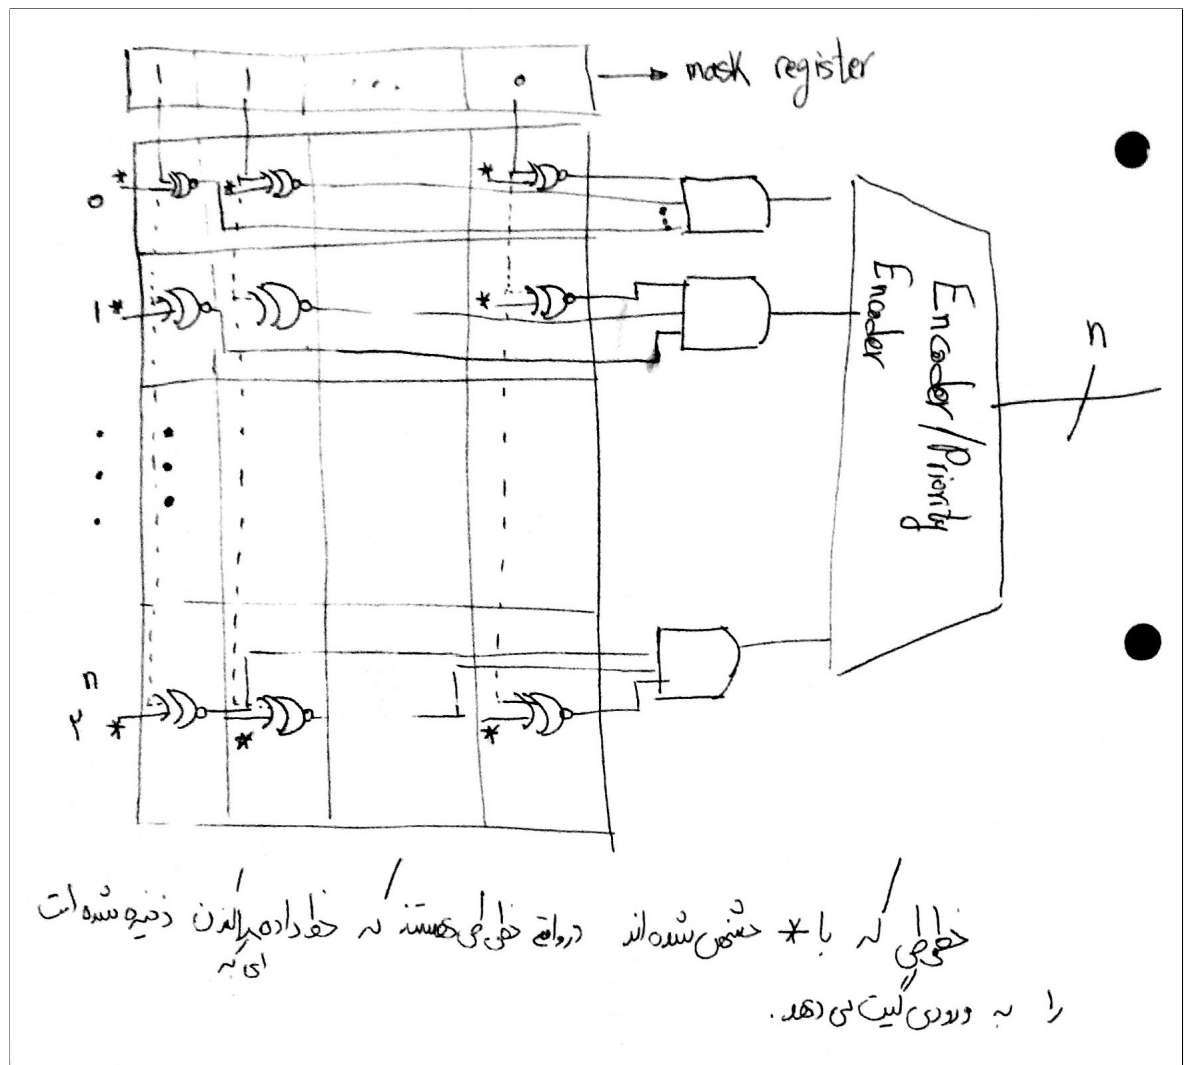 1 1 ... 0 → mask register
* * * 0
1 * *
Encoder/Priority
Encoder
n
n
۲ * * *
خطوطی که با * مشخص شده‌اند درواقع خطوطی هستند که خط داده ذخیره شده است
ای که
را به ورودی گیت می دهد.